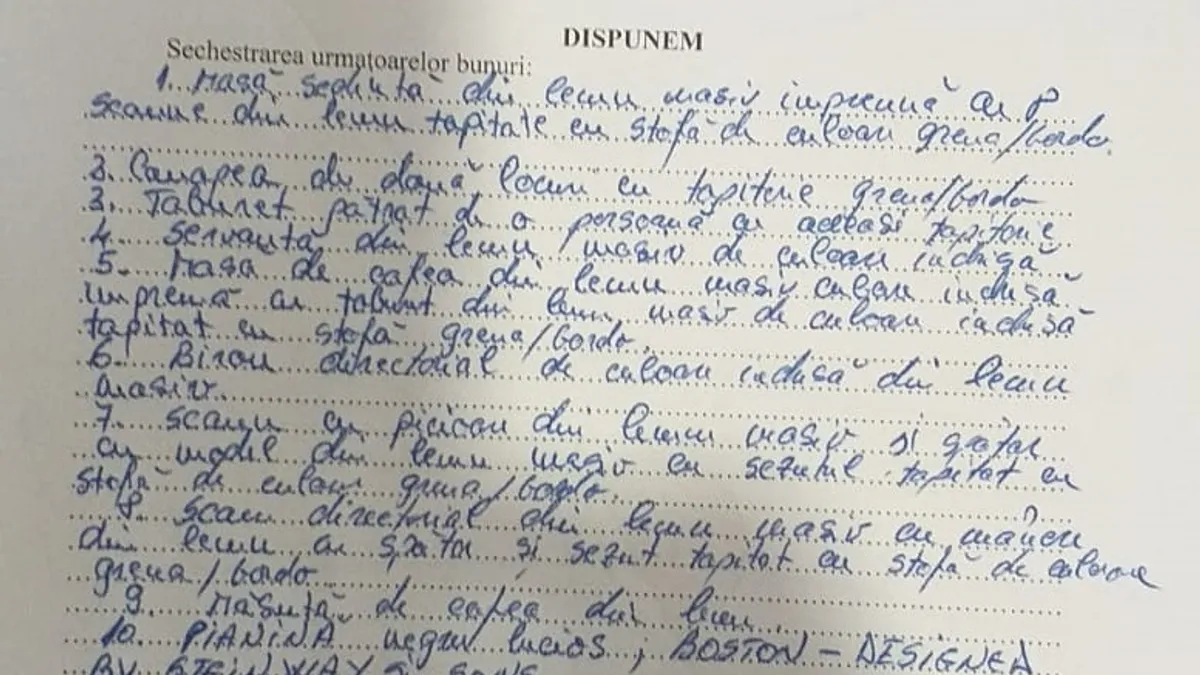 DISPUNEM
Sechestrarea urmatoarelor bunuri:
1. Masă din lemn masiv împreună cu 8
scaune din lemn tapitate cu stofă de culoare grena/bordo.
2. Canapea de două locuri cu tapiterie grena/bordo
3. Taburet pătrat de o persoană cu aceeasi tapiterie
4. Servantă din lemn masiv de culoare închisă
5. Masa de cafea din lemn masiv culoare închisă
împreună cu taburet din lemn masiv de culoare închisă
tapitat cu stofă grena/bordo.
6. Birou directorial de culoare închisă din lemn
masiv.
7. Scaun cu picioare din lemn masiv si
cu model din lemn masiv cu sezutul tapitat cu
stofă de culoare grena/bordo.
8. Scaun directorial din lemn masiv cu mânere
din lemn cu spătar si sezut tapitat cu stofă de culoare
grena/bordo
9. Măsuță de cafea din lemn.
10. PIANINA negru lucios, BOSTON - DESIGNED
BY STEINWAY & SONS